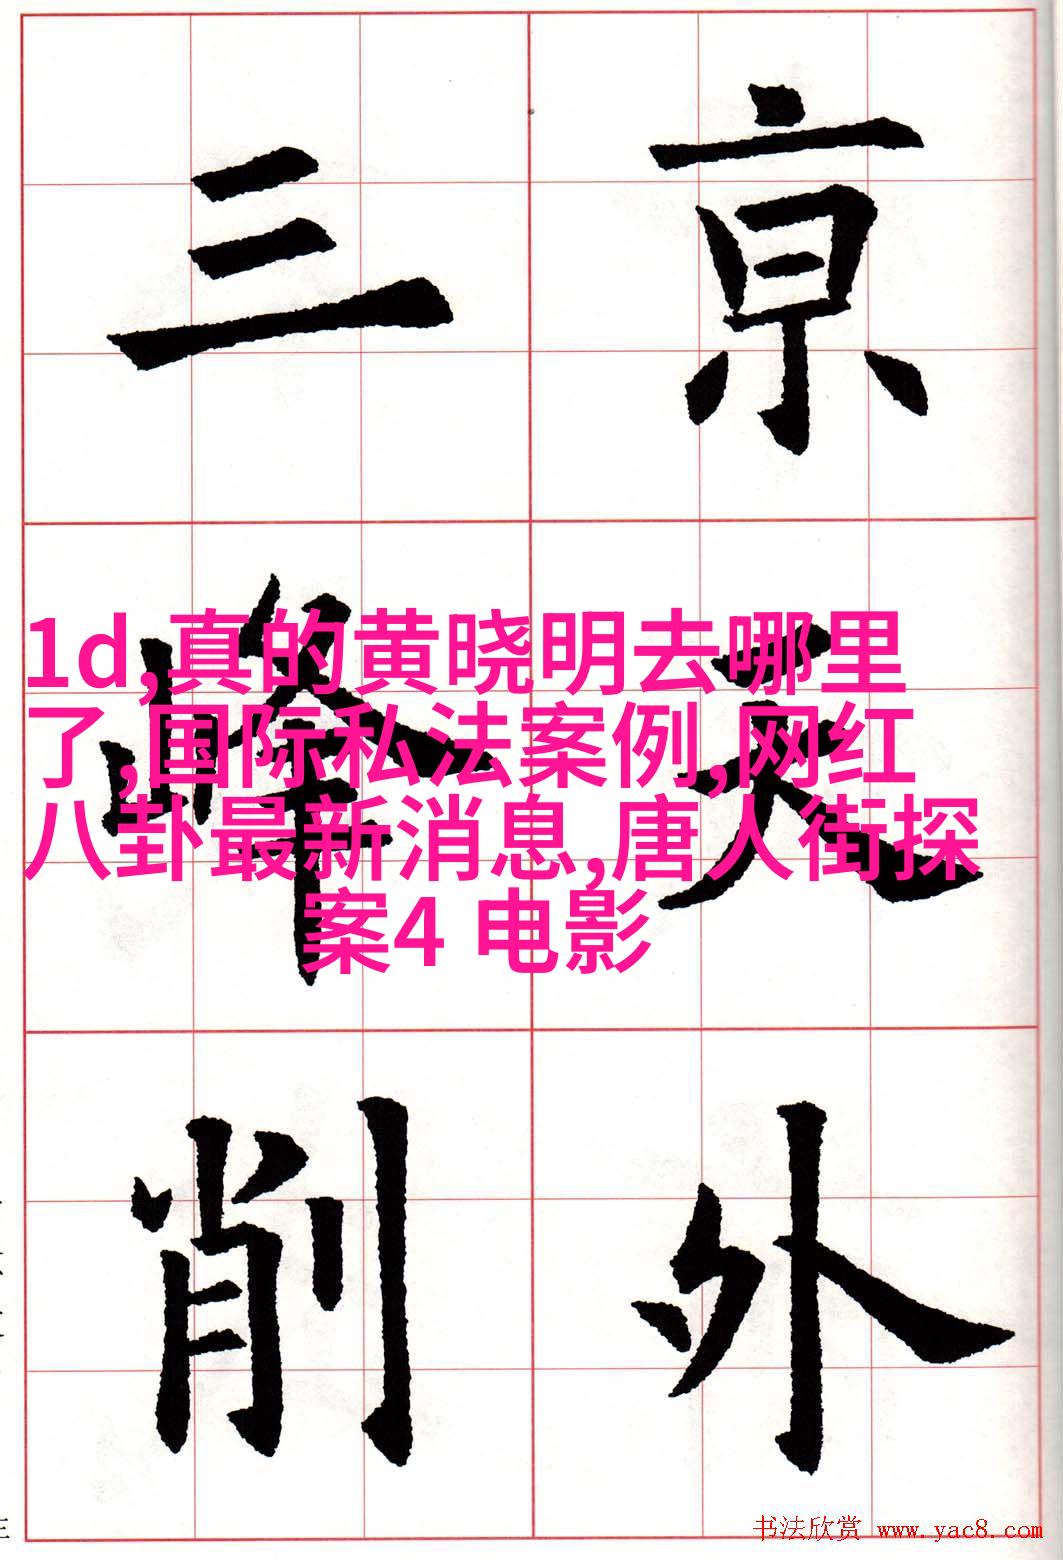 亰天外
三峰削
1d,真的黄晓明去哪里
了,国际私法案例,网红
八卦最新消息,唐人街探
案4 电影
书法欣赏 www.yac8.com